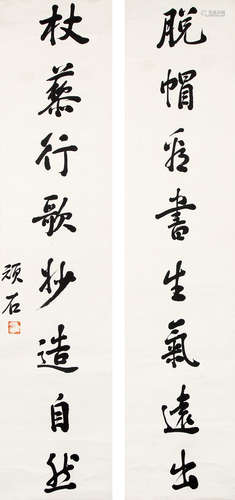 脱帽看書生氣遠出
杖藜行歌妙造自然
頑石